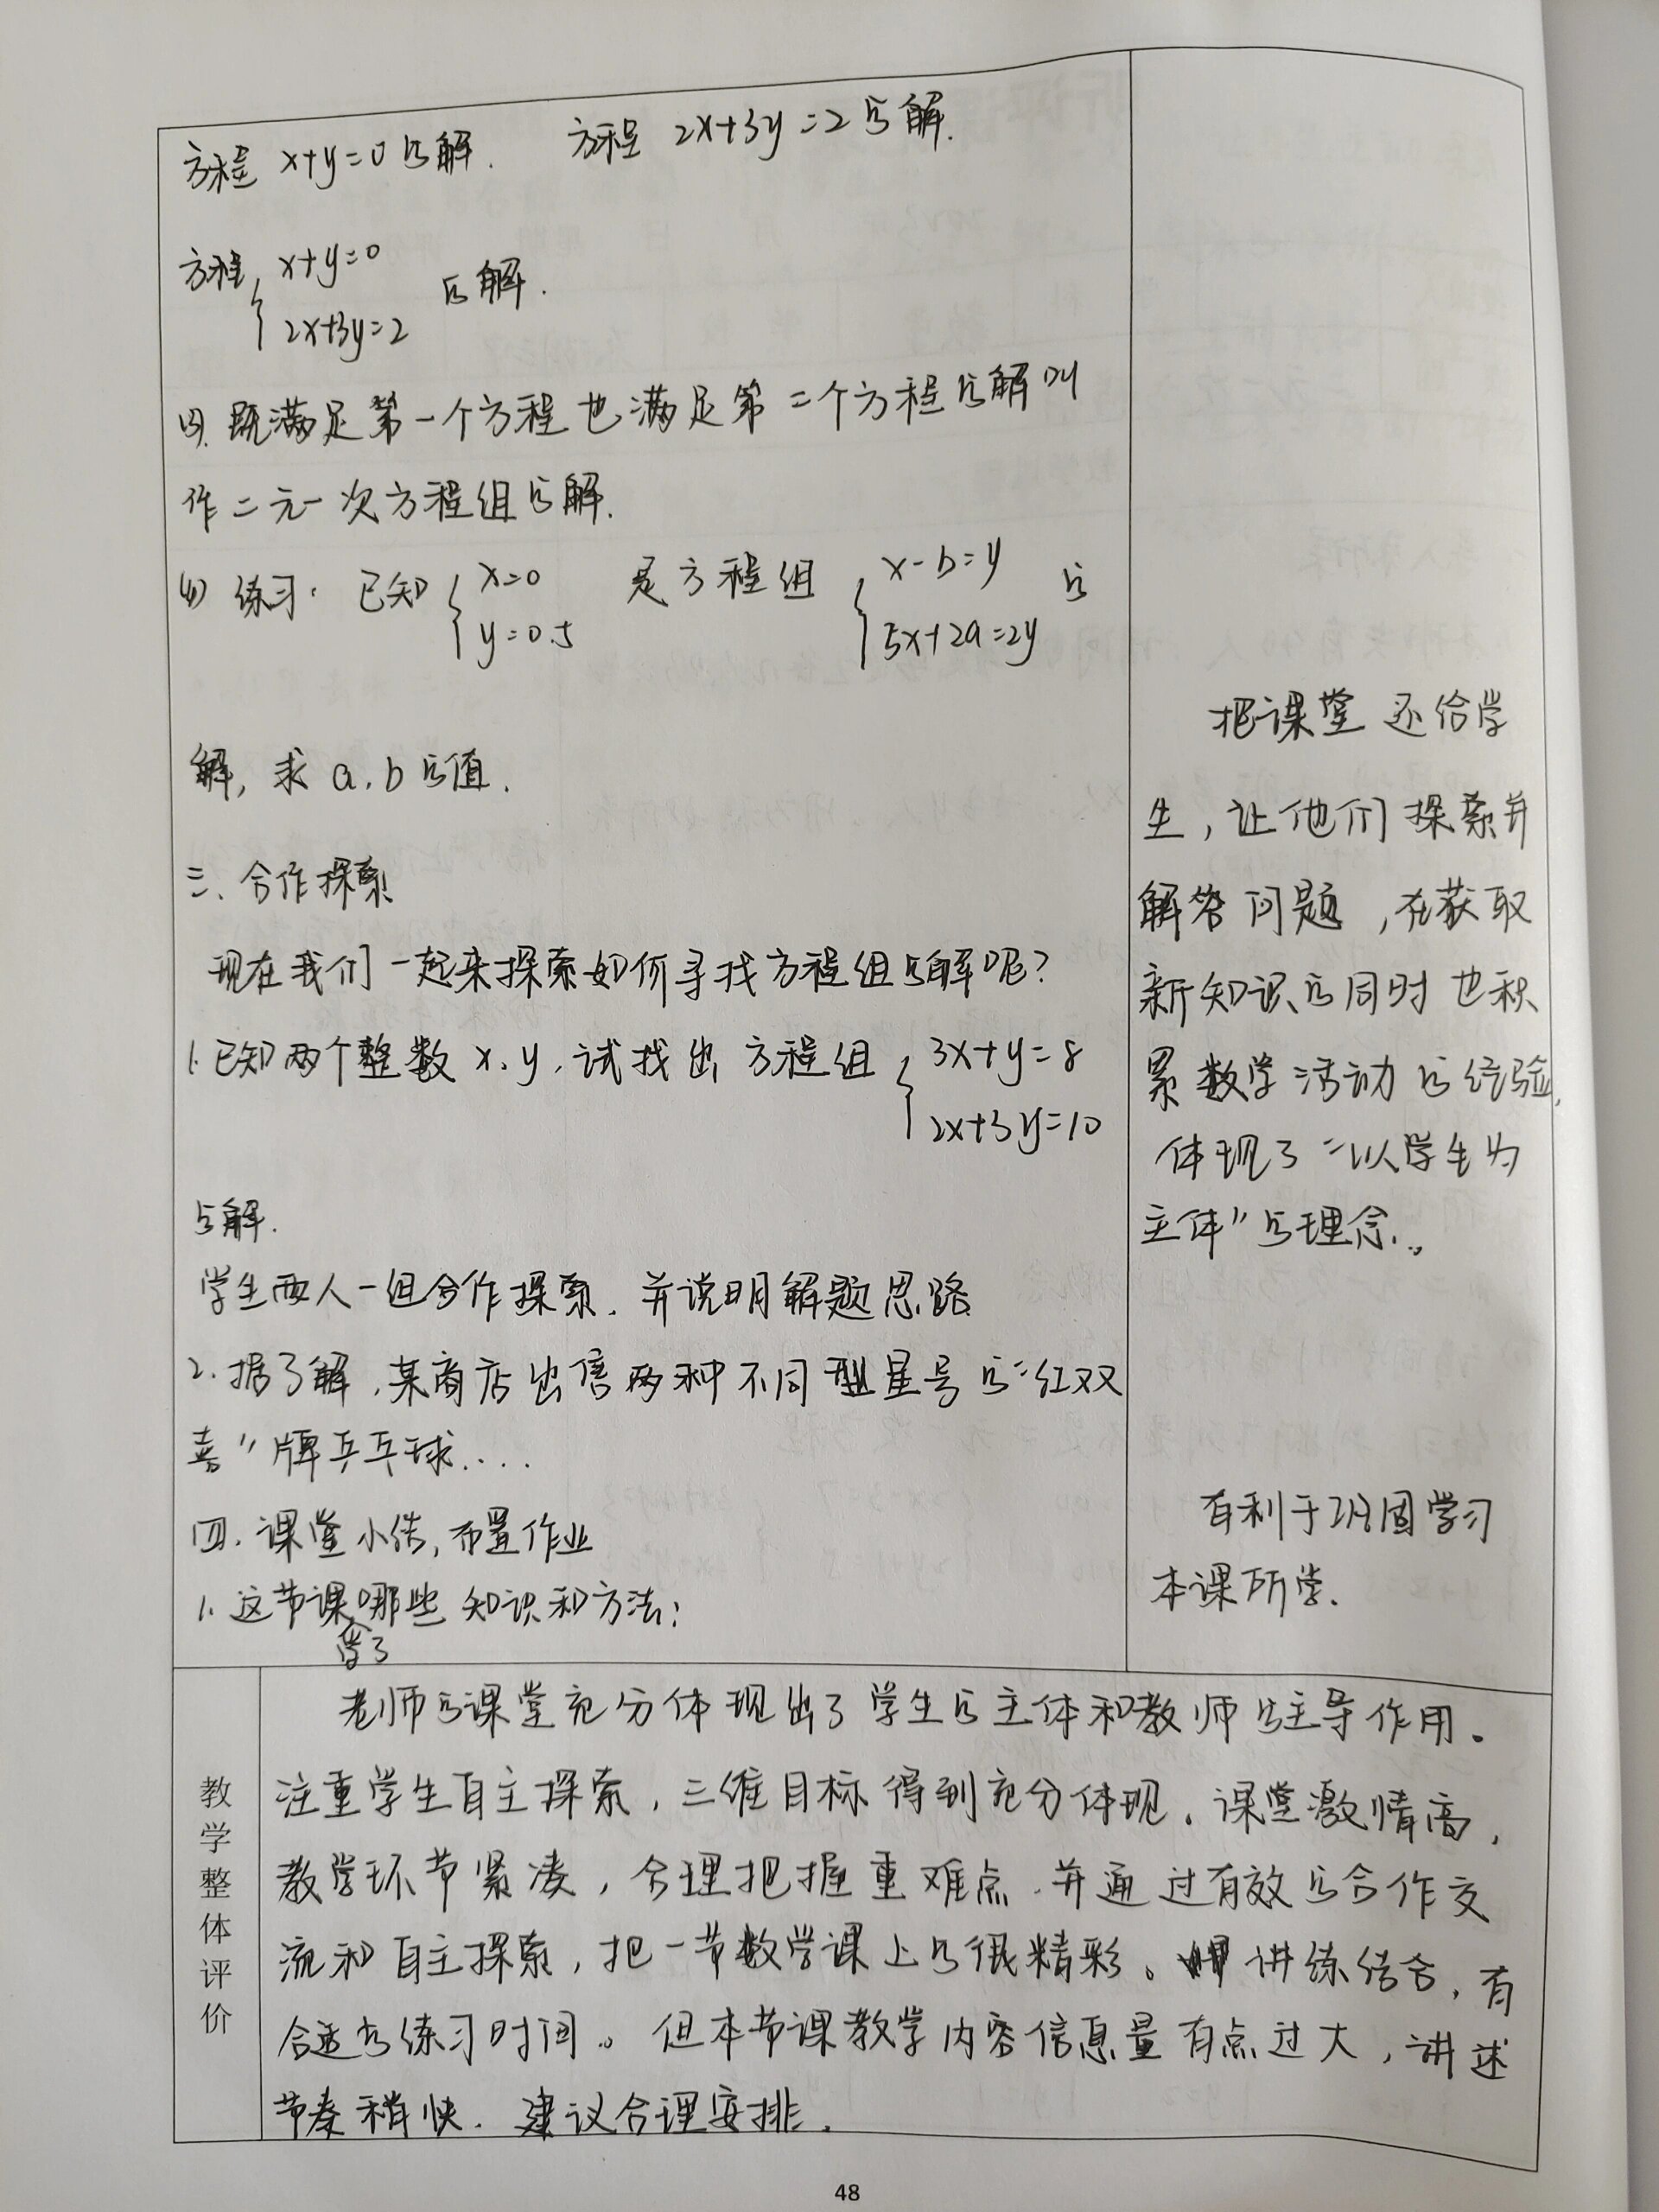 方程 x+y=0的解. 方程 2x+3y=2的解.
方程 { x+y=0
2x+3y=2 的解.
(3). 既满足第一个方程也满足第二个方程的解叫
作二元一次方程组的解.
(4) 练习. 已知 { x=0 是方程组 { x-b=y 的
y=0.5 5x+2a=2y
解, 求 a.b的值.
三、合作探索
现在我们一起来探索如何寻找方程组的解呢?
1.已知两个整数 x、y, 试找出 方程组 { 3x+y=8
2x+3y=10
的解.
学生两人一组合作探索. 并说明解题思路
2. 据了解, 某商店出售两种不同型号的“红双
喜”牌乒乓球....
四. 课堂小结, 布置作业
1. 这节课学了哪些知识和方法:
把课堂还给学
生, 让他们探索并
解答问题, 在获取
新知识的同时也积
累数学活动的经验,
体现了“以学生为
主体”的理念.。
有利于巩固学习
本课所学.
教学整体评价
老师的课堂充分体现出了学生的主体和教师的主导作用。
注重学生自主探索, 三维目标得到充分体现. 课堂激情高,
教学环节紧凑, 合理把握重难点. 并通过有效的合作交
流和自主探索, 把一节数学课上的很精彩。讲练结合, 有
合适的练习时间。但本节课教学内容信息量有点过大, 讲述
节奏稍快. 建议合理安排.
48